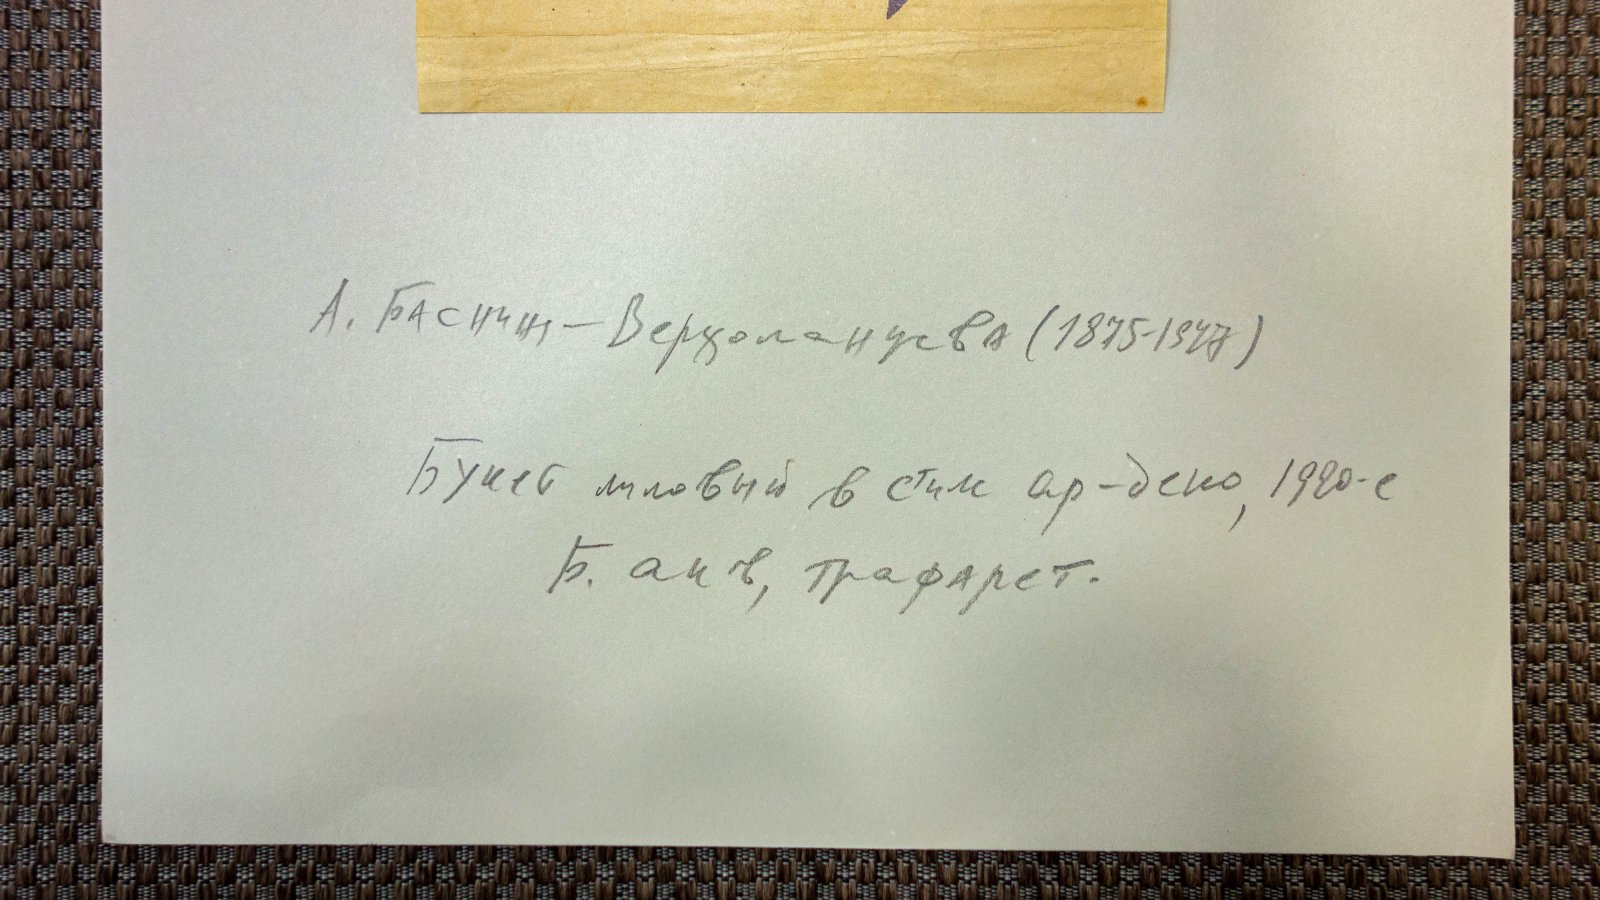 А. Баснин-Верхоланцева (1875-1947)
Букет лиловый в стиле ар-деко, 1920-е
Б. акв, трафарет.